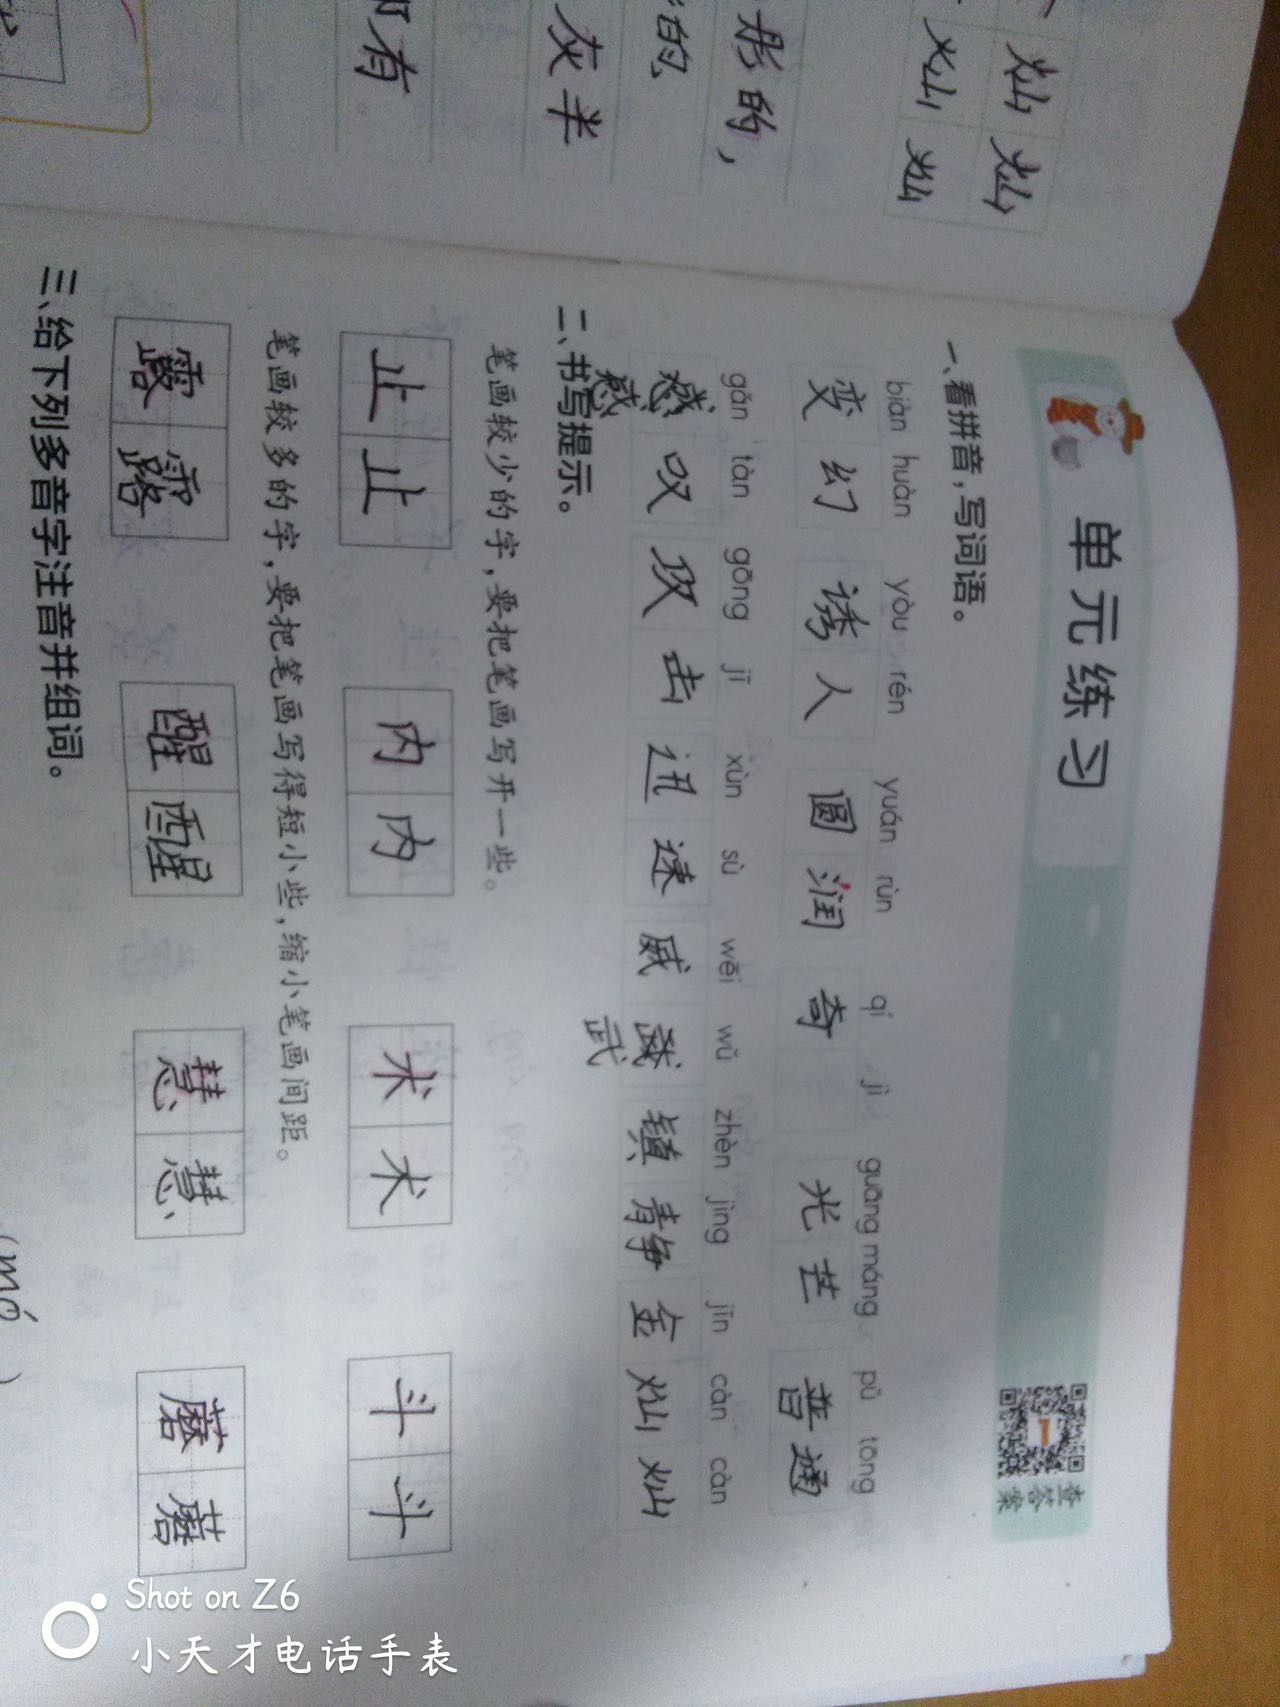 灿 灿
灿 灿
形的，
的
灰 半
有
单元练习
查答案
一、看拼音，写词语。
biàn huàn yòu rén yuán rùn qí jì guāng máng pǔ tōng
变幻 诱人 圆润 奇 光芒 普通
gǎn tàn gōng jī xùn sù wēi wǔ zhèn jìng jīn càn càn
感叹 攻击 迅速 威武 镇静 金灿灿
感 武
二、书写提示。
笔画较少的字，要把笔画写开一些。
止 止 内 内 术 术 斗 斗
笔画较多的字，要把笔画写得短小些，缩小笔画间距。
露 露 醒 醒 慧 慧 蘑 蘑
三、给下列多音字注音并组词。
(mó )
Shot on Z6
小天才电话手表